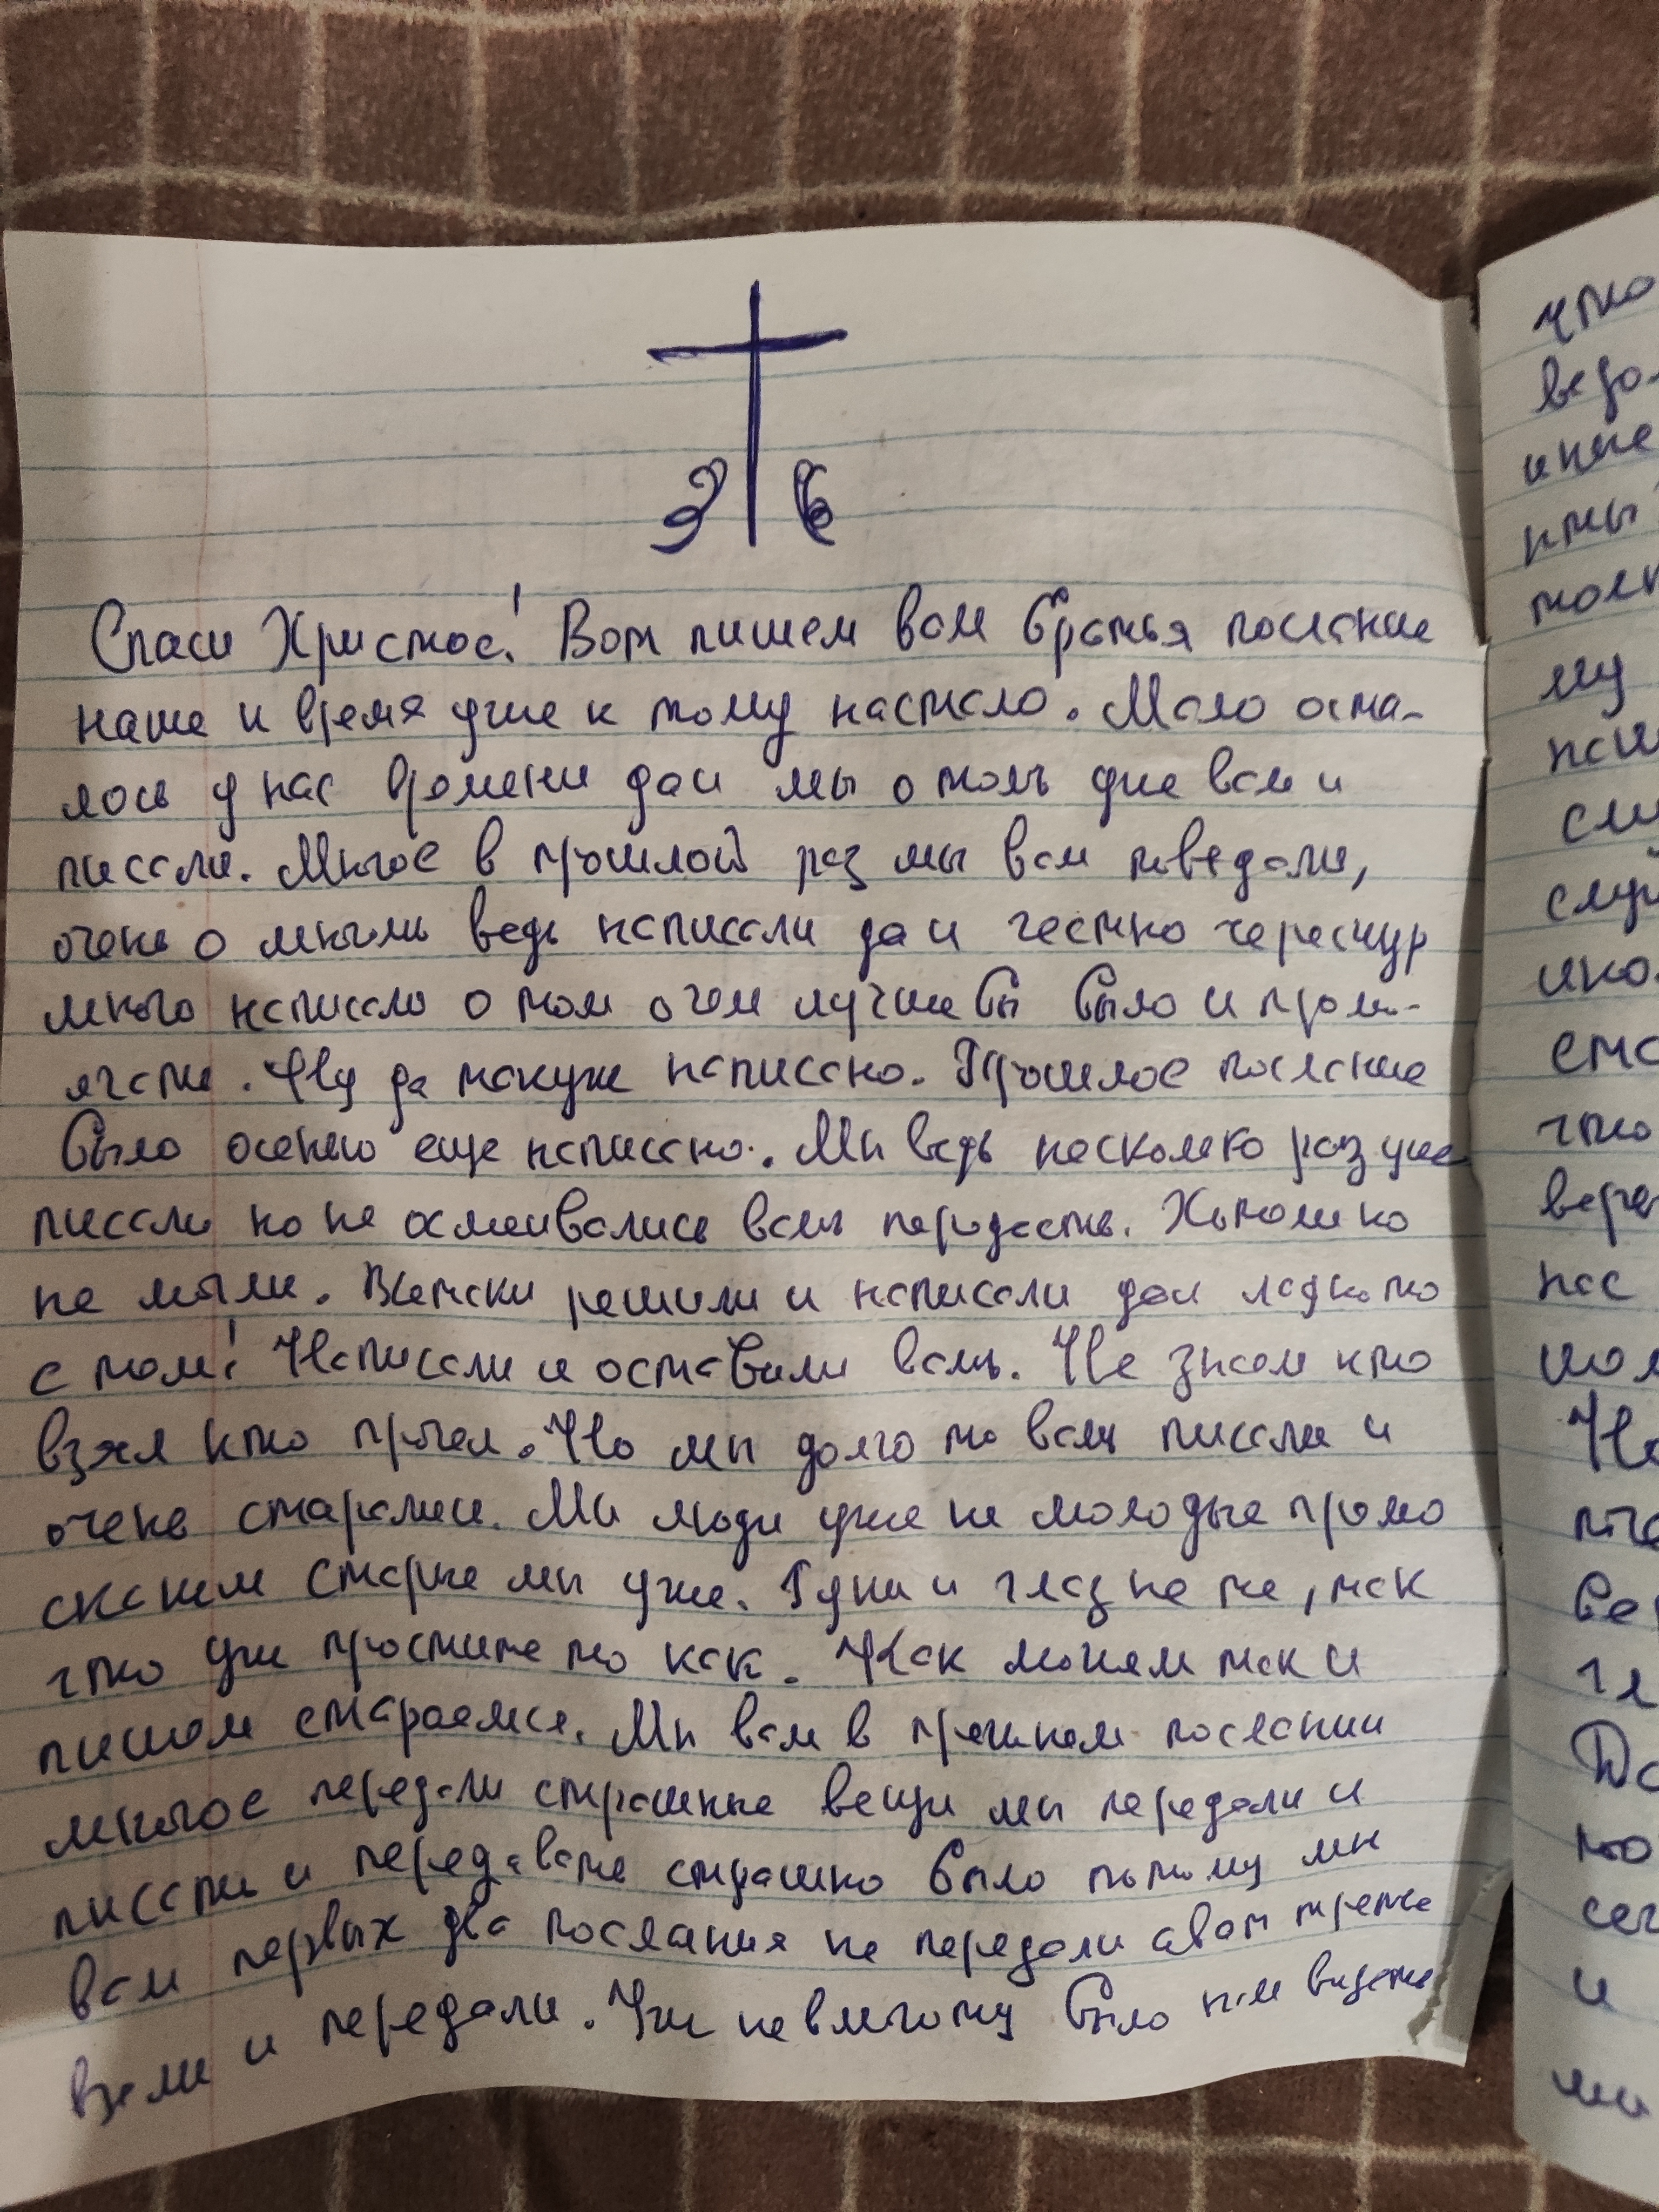 Спаси Христос! Вот пишем вам братья послание
наше и время уже к тому настало. Мало оста-
лось у нас времени даи мы о томъ уже вам и
писали. Многое в прошлой раз мы вам поведали,
очень о многомь ведь написали даи честно чересчур
много написало о том о чем лучше бы было и пром-
ягать. Ну да такуже написано. Прошлое послание
было осенью еще написано. Мы ведь несколько раз уже
писали но не осмеивались вамъ передать. Хотоли но
не могли. Всетаки решили и написали даи ладно то
с том! Написали и оставили вамъ. Не знаем кто
взял кто прочел. Но мы долго то вамъ писали и
очень старались. Мы люди уже не молодые прямо
скажем старые мы уже. Руки и глаз не те, так
что уж простите то как. Как можем так и
пишем стараемся. Мы вам в прошлом послании
многое передали страшные вещи мы передали и
писать и передавать страшно было потому мы
вам первых два послания не передали авот третье
взяли и передали. Уж невмоготу было нам видеть
что
му
что
нас
и